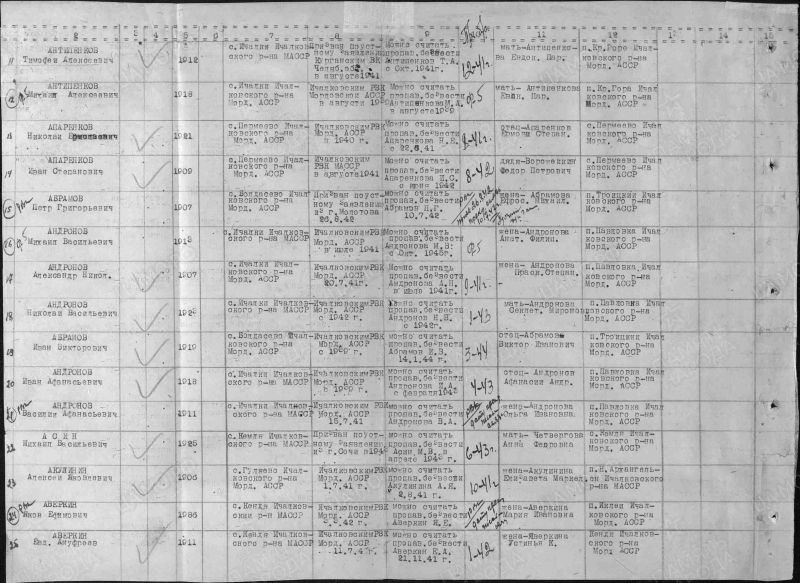 3 4 5 6 7 8 9 10 11 12 13 14 15
11 АНТИПЕНКОВ Тимофей Алексеевич 1912 с.Ичалки Ичалковского р-на МАССР
Призван поустному заявлению Курганским ВК Челяб.обл. в августе1941
Можно считать пропав.безвести Антипенков Т.А. с Окт.1941г. 12-41г.
мать-Антипенкова Евдок. Пар. п.Кр.Гора Ичалковского р-на Морд. АССР
12 АНТИПЕНКОВ Михаил Алексеевич 1918 с.Ичалки Ичалковского р-на Морд. АССР
Ичалковским РВК Мордовской АССР в августе
Можно считать пропав.безвести Антипенков М.А. в августе
мать- Антипенкова Евдок. Пар. п.Кр.Гора Ичалковского р-на Морд. АССР
АПАРЕНКОВ Николай 1921 с.Пермеево Ичалковского р-на Морд. АССР
Ичалковским РВК Морд. АССР в 1940 г.
Можно считать пропав.безвести с 22.6.41 8-41г.
отец-Апаренков Степан. с.Пермеево Ичалковского р-на Морд. АССР
14 АПАРЕНКОВ Иван Степанович 1909 с.Пермеево Ичалковского р-на Морд. АССР
Ичалковским РВК МАССР в августа1941
Можно считать пропав.безвести Апаренков И.С. с июня 1942 8-42
дядя-Ворожейкин Федор Петрович с.Пермеево Ичалковского р-на Морд. АССР
15 АБРАМОВ Петр Григорьевич 1907 с.Болдасево Ичалковского р-на Морд. АССР
Призван поустному заявлению г.Молотова 26.8.42
Можно считать пропав.безвести Абрамов П.Г. 10.7.42
жена- Абрамова Ефрос. Михаил. п.Троицкий Ичалковского р-на Морд. АССР
АНДРОНОВ Михаил Васильевич с.Ичалки Ичалковского р-на МАССР
Ичалковским РВК Морд. АССР в июле 1941
Можно считать пропав.безвести Андронова М.В. с Окт.
жена-Андронова Анат. Филип. п.Павловка Ичалковского р-на Морд. АССР
17 АНДРОНОВ Александр Никол. 1907 с.Ичалки Ичалковского р-на Морд. АССР
Ичалковским РВК Морд. АССР 20.7.41г.
Можно считать пропав.безвести Андронова А.Н. в июле 1941г. 9-41г.
жена- Андронова Праск.Степан. п.Павловка Ичалковского р-на Морд. АССР
18 АНДРОНОВ Николай Васильевич с.Ичалки Ичалковского р-на МАССР
Ичалковским РВК Морд. АССР с 1942 г.
Можно считать пропав.безвести Андронов Н.В. с 1942г. 1-43
мать-Андронова Миронов п.Павловка Ичалковского р-на Морд. АССР
19 АБРАМОВ Иван Викторович 1919 с.Болдасево Ичалковского р-на Морд. АССР
Ичалковским РВК Морд. АССР
Можно считать пропав.безвести Абрамов И.В. 14.1.44 г. 3-44
отец-Абрамов Виктор Иванович п.Троицкий Ичалковского р-на Морд. АССР
20 АНДРОНОВ Иван Афанасьевич 1918 с.Ичалки Ичалковского р-на Морд. АССР
Ичалковским РВК Морд. АССР
Можно считать пропав.безвести Андронова И.А. с февраля 4-43
отец- Андронов Афанасий Андр. п.Павловка Ичалковского р-на Морд. АССР
21 АНДРОНОВ Василий Афанасьевич 1911 с.Ичалки Ичалковского р-на МАССР
Ичалковским РВК Морд. АССР 15.7.41
Можно считать пропав.безвести Андронова В.А.
жена-Андронова Ольга Ивановна п.Павловка Ичалковского р-на Морд. АССР
22 АСИН Михаил Васильевич 1925 с.Кемля Ичалковского р-на МАССР
Призван поустному заявлению г.Сочи в
Можно считать пропав.безвести Асин М.В. в апреле 6-43г.
мать- Четвергова Анна Федоровна с.Кемля Ичалковского р-на Морд. АССР
23 АКУЛИНИН Алексей Яковлевич 1906 с.Гуляево Ичалковского р-на Морд. АССР
Ичалковским РВК Морд. АССР 1.7.41 г.
можно считать пропав.безвести Акулинина А.Я. 2.8.41 г. 10-41г.
жена-Акулинина Елизавета Маркел. п.Н.Архангельск Ичалковского р-на МАССР
24 АВЕРКИН Яков Ефимович с.Кендя Ичалковский р-н МАССР
Ичалковским РВК Морд. АССР
можно считать пропав.безвести Аверкин Я.Е.
жена-Аверкина Мария Ивановна п.Иклей Ичалковского р-на Морд. АССР
25 АВЕРКИН 1911 с.Кендя Ичалковского р-на МАССР
Ичалковским РВК Морд. АССР
Можно считать пропав.безвести Аверкин Е.А. 21.11.41 г. 1-42
жена-Аверкина Устинья К. Кендя Ичалковского р-на Морд. АССР